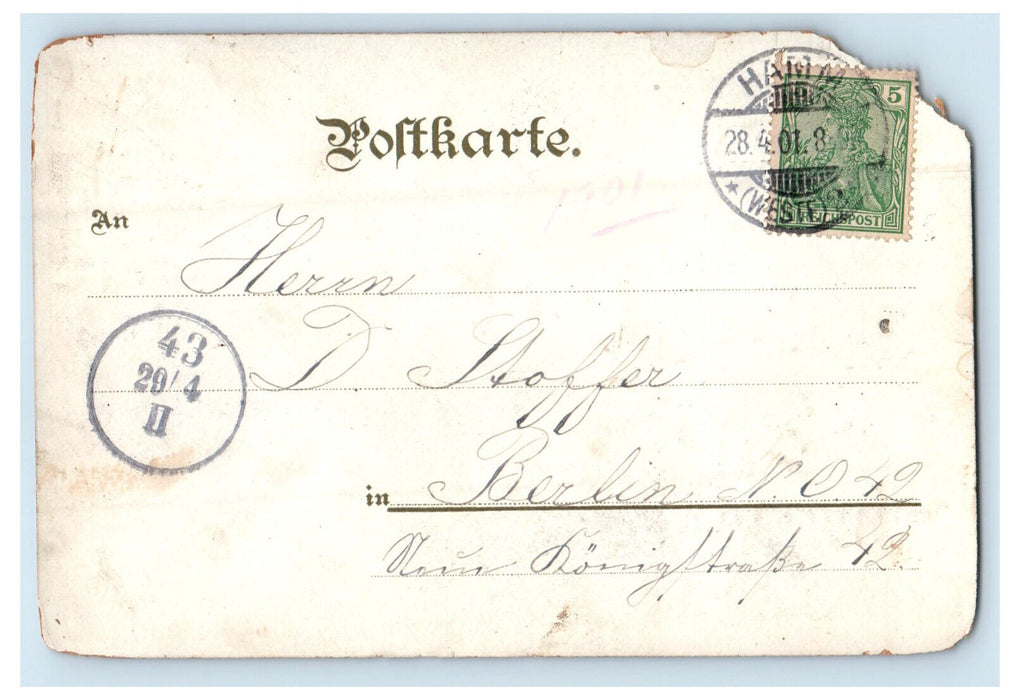 Postkarte.
HAMM
5
28.4.01.8-
(WESTF.)
REICHSPOST
An
Herrn
43
29/4
II
D. Stoffer
in Berlin N. O. 42
Neue Königstraße 42.